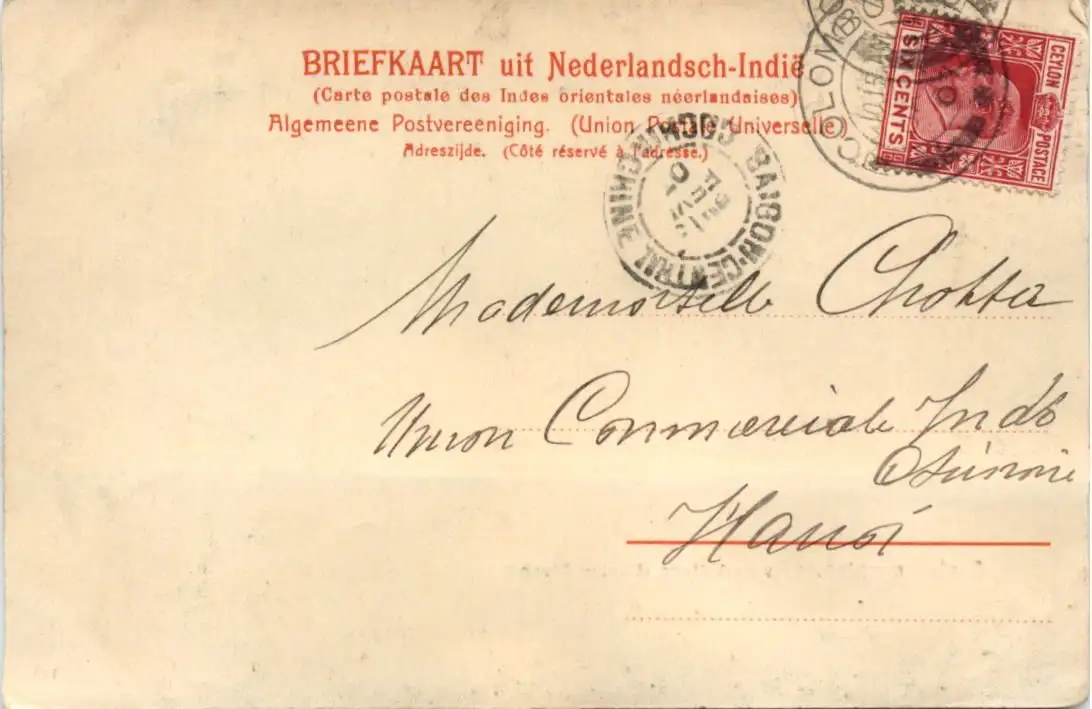 BRIEFKAART uit Nederlandsch-Indië
(Carte postale des Indes orientales néerlandaises)
Algemeene Postvereeniging. (Union Postale Universelle)
Adreszijde. (Côté réservé à l'adresse.)
CEYLON POSTAGE
SIX CENTS
COLOMBO
SAIGON-CENTRAL
COCHINCHINE
Mademoiselle
Union Commerciale Indo
Chinoise
Hanoi